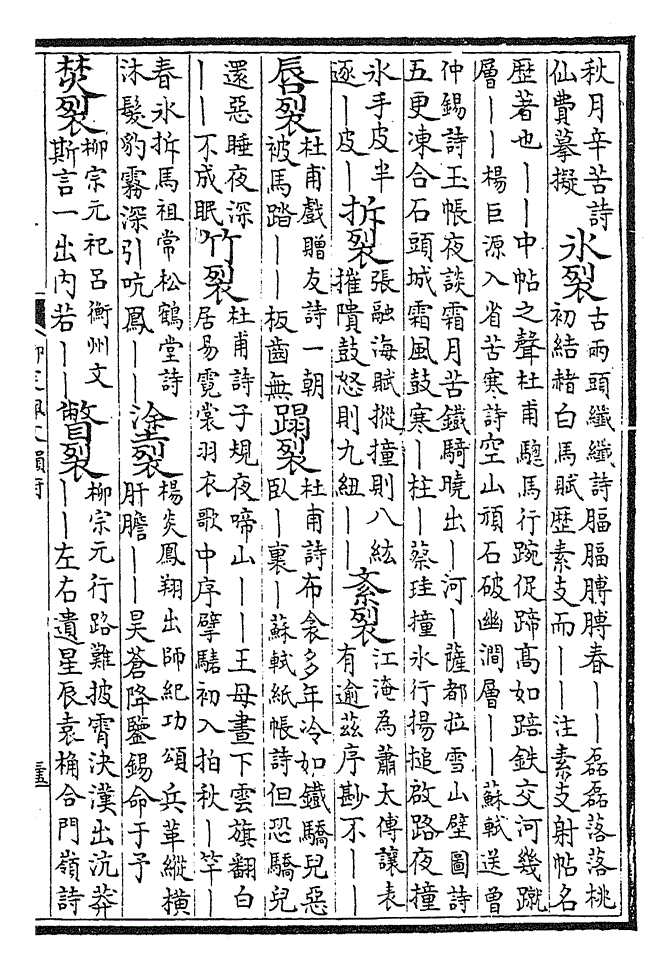 秋月辛苦詩
仙費摹擬
氷裂
古兩頭纖纖詩腷腷膊膊春——磊磊落落桃
初結赭白馬賦歴素支而——注素支射帖名
歴著也——中帖之聲杜甫驄馬行踠促蹄髙如踣鉄交河幾蹴
層——楊巨源入省苦寒詩空山頑石破幽澗層——蘇軾送曾
仲錫詩玉帳夜談霜月苦鐡騎曉出—河—薩都拉雪山壁圖詩
五更凍合石頭城霜風鼓寒—柱—蔡珪撞氷行揚搥啟路夜撞
氷手皮半
逐—皮—
拆裂
張融海賦摐撞則八紘
摧隤鼓怒則九紐——
紊裂
江淹為蕭太傅讓表
有逾兹序尠不——
唇裂
杜甫戲贈友詩一朝
被馬踏——板齒無
蹋裂
杜甫詩布衾多年冷如鐡驕兒惡
臥—裏—蘇軾紙帳詩但恐驕兒
還惡睡夜深
——不成眠
竹裂
杜甫詩子規夜啼山——王母晝下雲旗翻白
居易霓裳羽衣歌中序擘騞初入拍秋—竿—
春氷拆馬祖常松鶴堂詩
沐髮豹霧深引吭鳳——
塗裂
楊炎鳳翔出師紀功頌兵革縱横
肝膽——昊蒼降鑒錫命于予
焚裂
柳宗元祀呂衡州文
斯言一出内若——
瞥裂
柳宗元行路難披霄決漢出沆莽
——左右遺星辰袁桷合門嶺詩